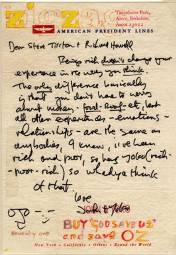 zigzag
AMERICAN PRESIDENT LINES
Tittenhurst Park,
Ascot, Berkshire.
Ascot 23022
Dear Steve Tilston & Richard Howell
Being rich doesn't change your
experience in the way you think.
The only difference basically
is that you don't have to worry
about money - food - roof - etc, but
all other experiences - emotions -
relationships - are the same as
anybodies, I know, I've been
rich and poor, so has yoko (rich -
poor - rich) so whadya think
of that.
love
John & Yoko
BUY GOD SAVE US
GOD SAVE OZ
New York • California • Orient • Round the World